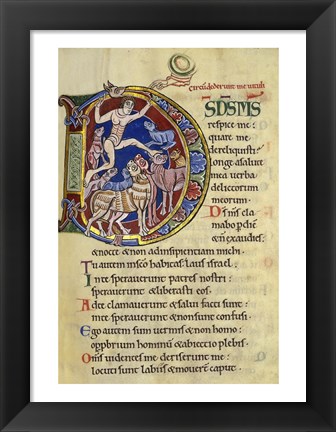 Circūdederunt me vituli
SD̄S M̄S
respice me:
quare me
dereliquisti:
longe a salute
mea verba
delictorum
meorum.
D̄s m̄s cla
mabo p̄ diē
& ñ exaudies:
& nocte & non ad insipientiam michi.
Tu autem in sc̄o habitas: laus israel.
In te speraverunt patres nostri:
speraverunt & liberasti eos.
Ad te clamaverunt & salvi facti sunt:
in te speraverunt & non sunt confusi.
Ego autem sum vermis & non homo:
opprbrium hominū & abiectio plebis.
Om̄s videntes me deriserunt me:
locuti sunt labiis & moverūt caput.